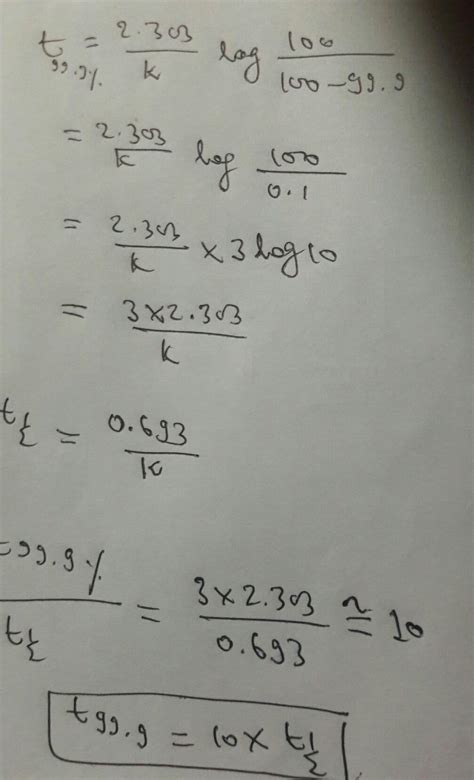 t99.9% = 2.303/k log 100/100-99.9
= 2.303/k log 100/0.1
= 2.303/k × 3 log 10
= 3×2.303/k
t½ = 0.693/k
t99.9%/t½ = 3×2.303/0.693 ≅ 10
t99.9 = 10× t½